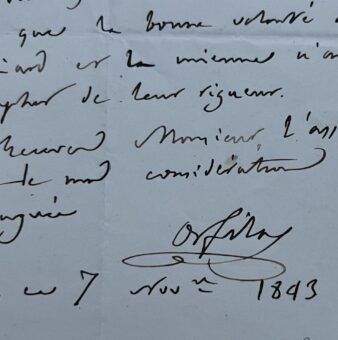 que la bonne volonté
et la mienne n'a
de leur rigueur.
Recevez Monsieur, l'ass
de ma considération
Orfila
ce 7 Novre 1843